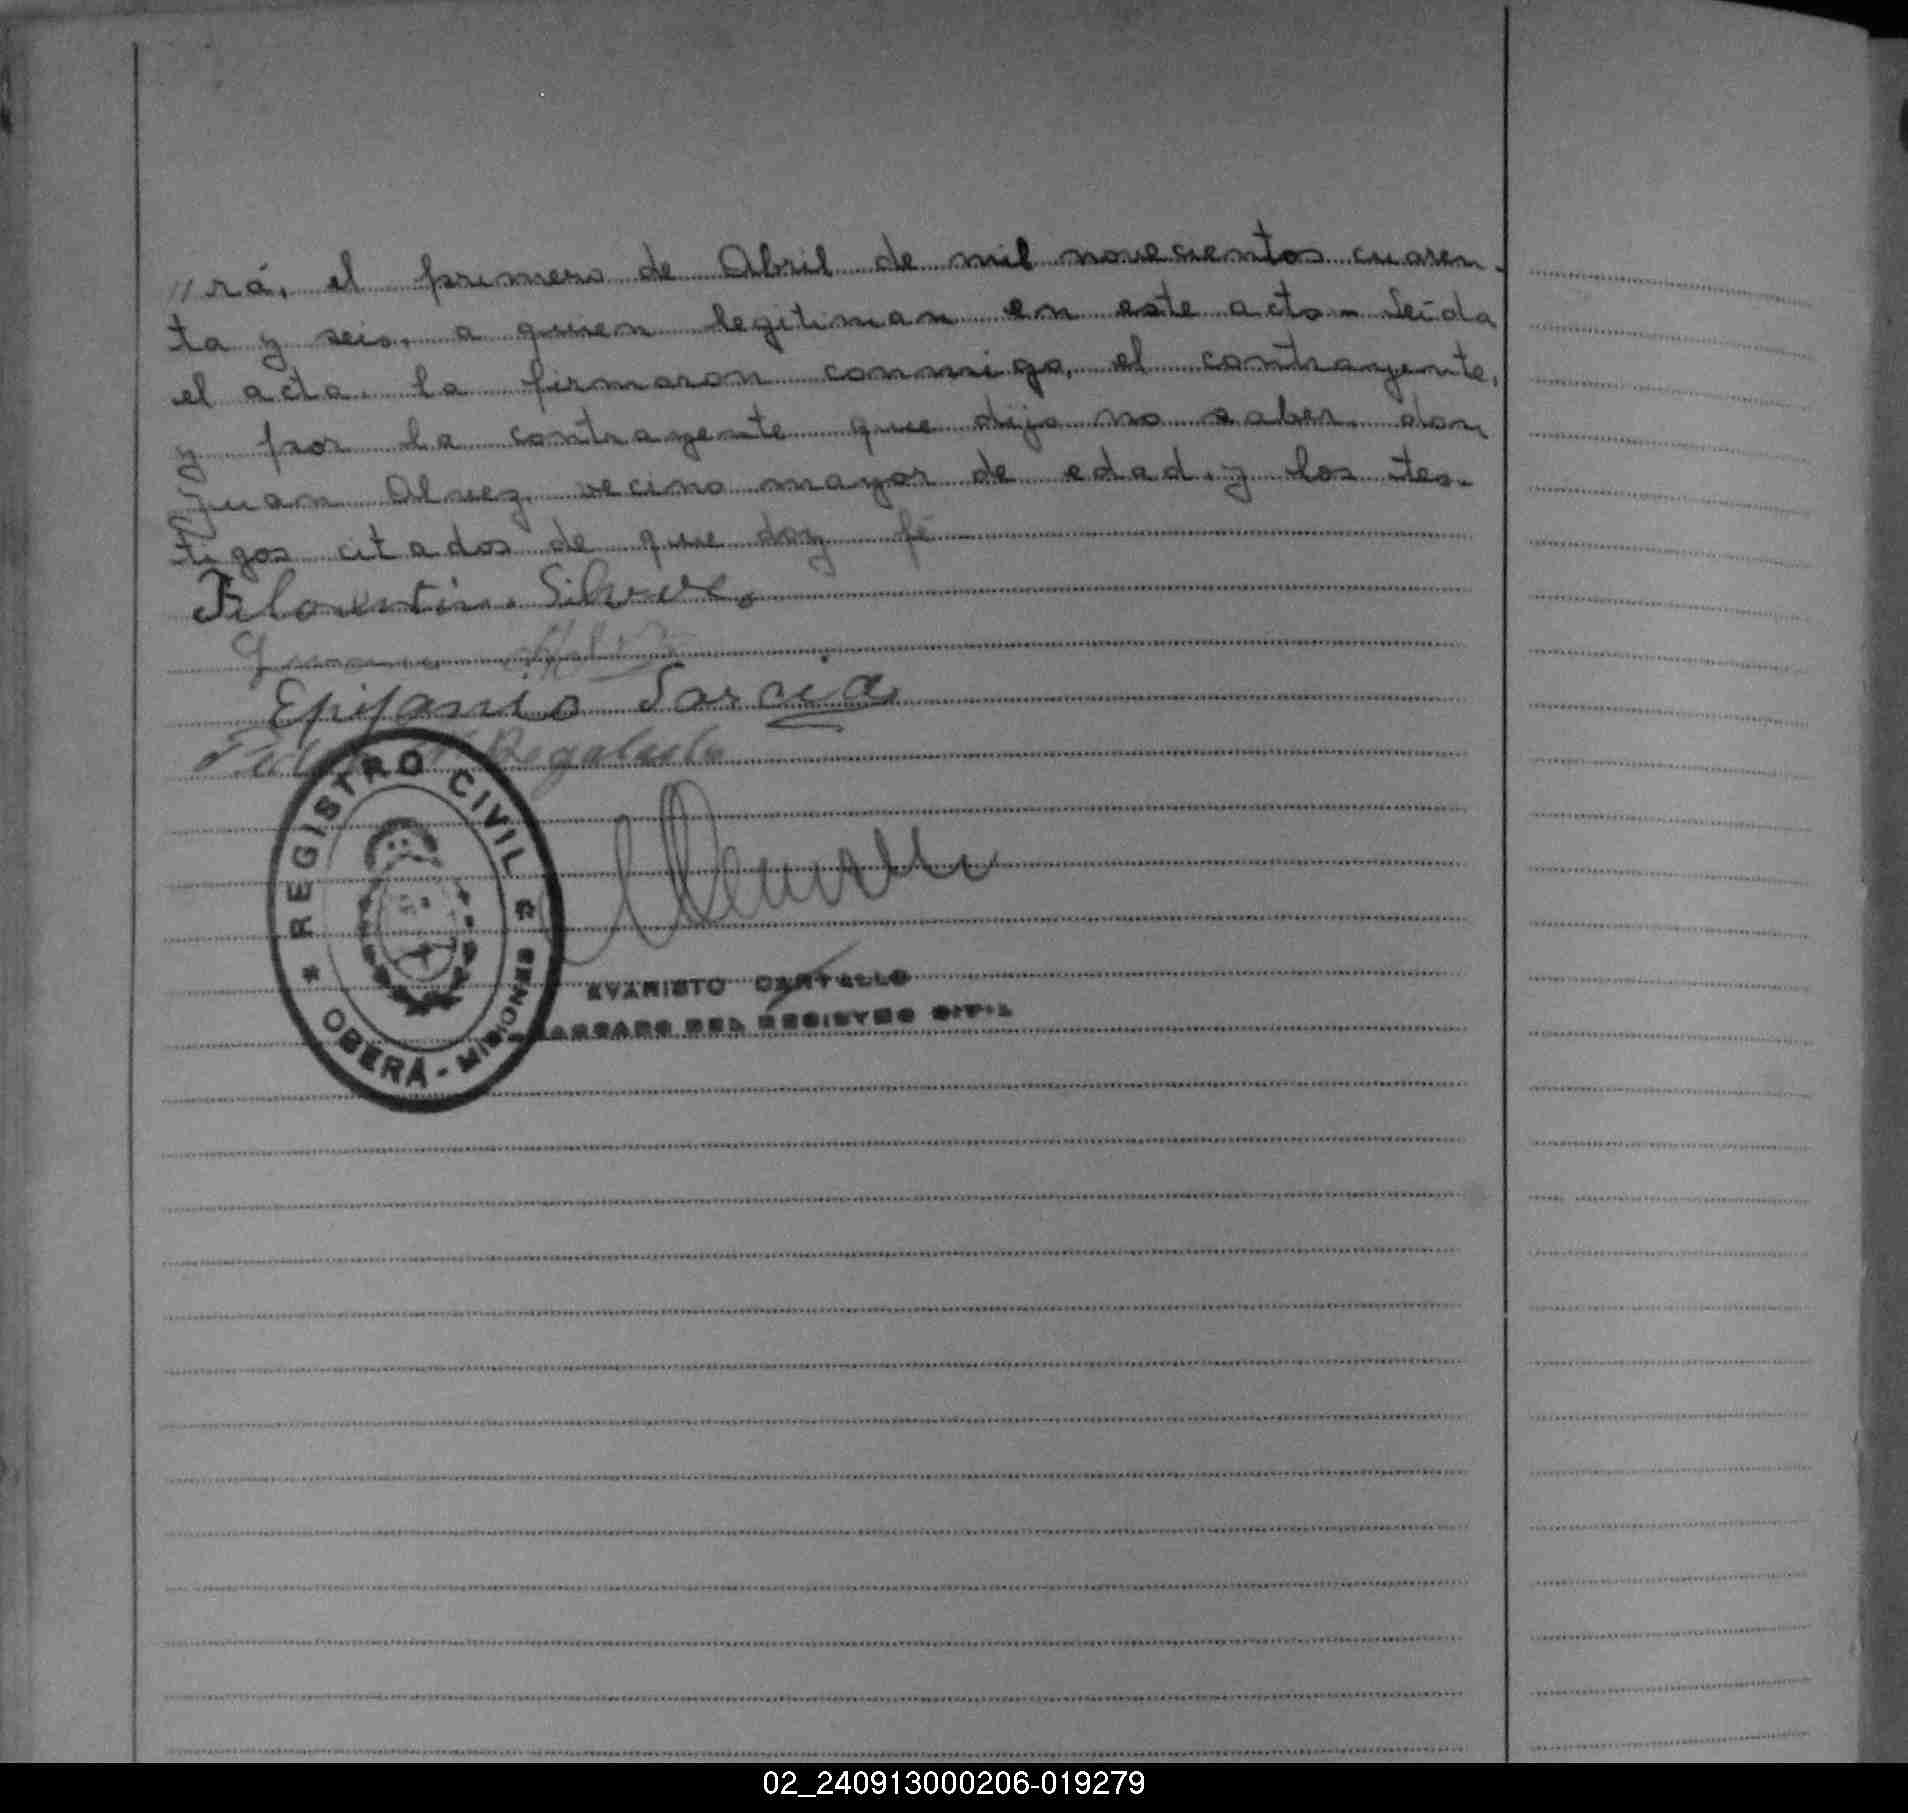 // rá, el primero de Abril de mil novecientos cuaren-
ta y seis, a quien legitiman en este acto - Leída
el acta, la firmaron conmigo, el contrayente,
y por la contrayente que dijo no saber, don
Juan Alvez, vecino mayor de edad, y los tes-
tigos citados de que doy fé
Florentin Silvere.
Epifanio Garcia
Regalado
REGISTRO CIVIL
OBERÁ - MISIONES
EVARISTO
DEL REGISTRO CIVIL
02_240913000206-019279